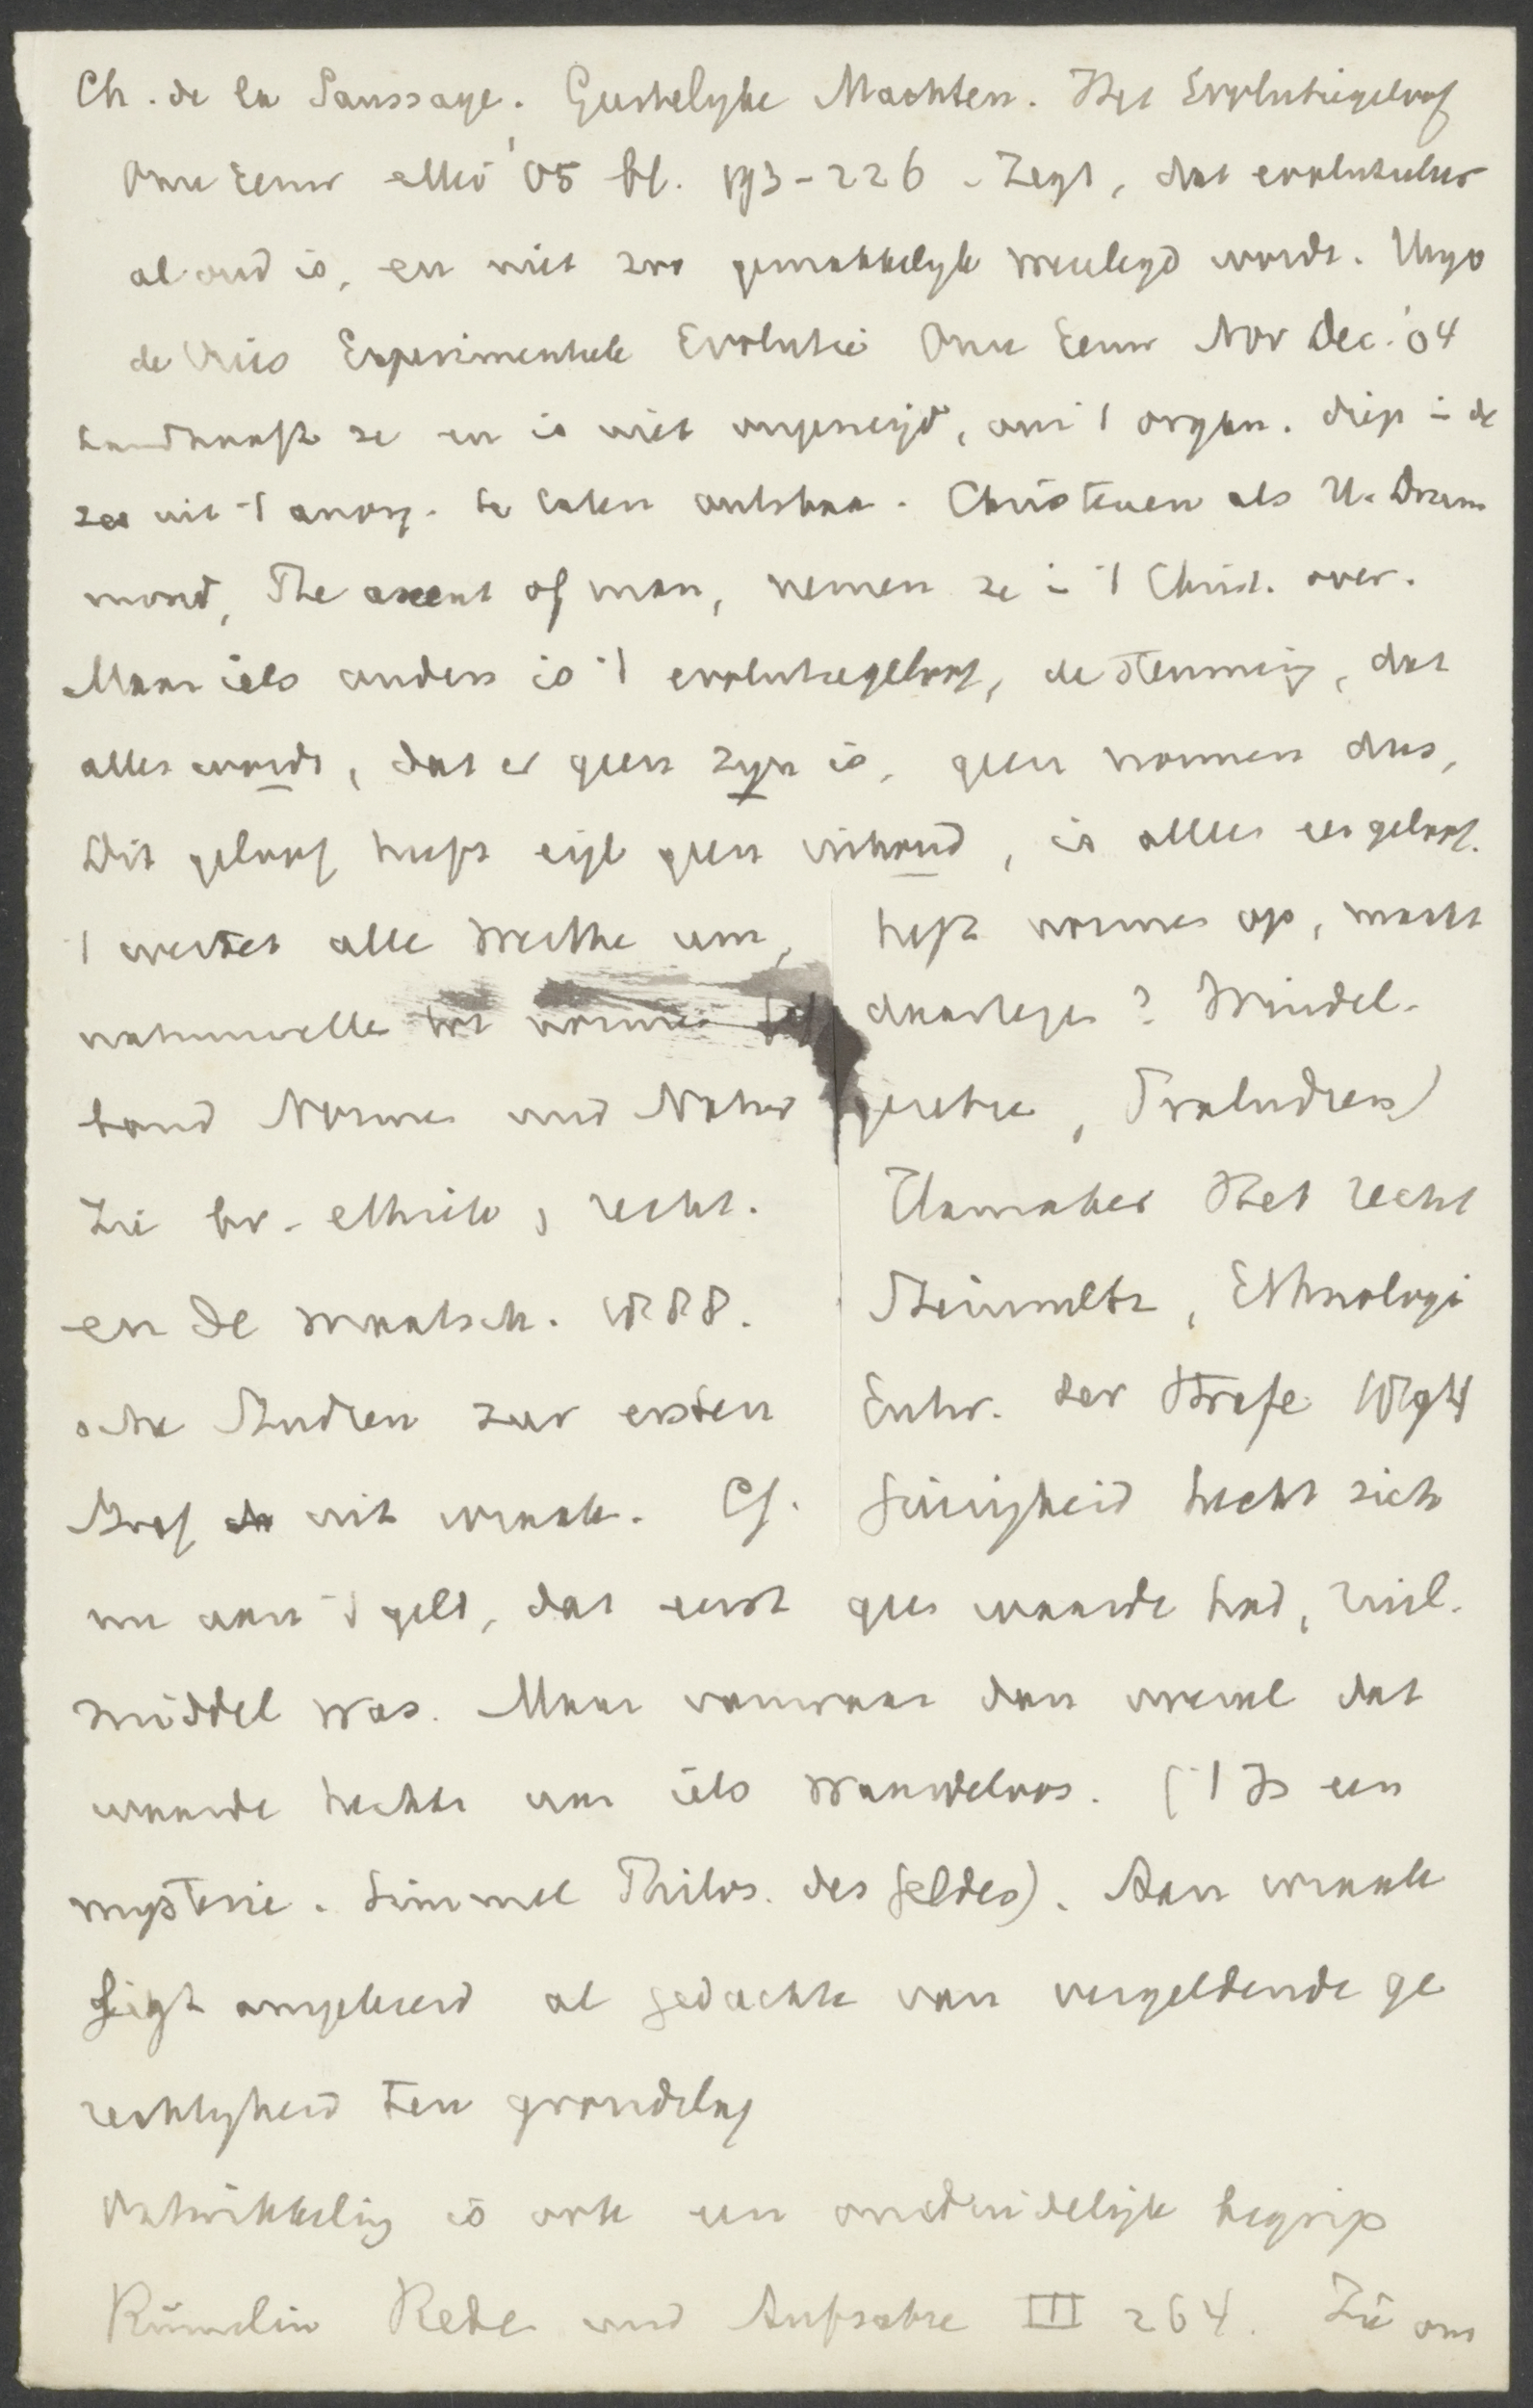 Ch. de la Saussaye. Geestelyke Machten. Het Evolutiegeloof
Onze Eeuw Mei '05 bl. 193-226. Zegt, dat evolutieleer
al oud is, en niet zoo gemakkelyk weerlegd wordt. Hugo
de Vries Experimenteele Evolutie Onze Eeuw Nov Dec. '04
handhaaft ze en is niet ongeneigd, om 't organ. diep in de
zee uit 't anorg. te laten ontstaan. Christenen als H. Drum
mond, The ascent of man, nemen ze in 't Christ. over.
Maar iets anders is 't evolutiegeloof, de stemming, dat
alles wordt, dat er geen zyn is, geen normen dus,
Dit geloof heeft eigl geen inhoud, is alleen een geloof.
't wertet alle Werthe um, heft normen op, maakt
natuurwetten tot normen daartegen? Windel-
band Normen und Naturgesetze, Praludien)
Zie br. ethiek, recht. Hamaker Het recht
en de maatsch. 1888. Steinmetz, Ethnologi
sche Studien zur ersten Entw. der Strafe 1894
Straf uit wraak. Cf. Gierigheid hecht zich
nu aan 't geld, dat eerst geen waarde had, ruil-
middel was. Maar vanwaar dan wraak dat
waarde hechten aan iets waardeloos. ('t Is een
mysterie. Simmel Philos. des Geldes). Aan wraak
ligt omgekeerd al gedachte van vergeldende ge
rechtigheid ten grondslag
Ontwikkeling is ook een onduidelijk begrip
Rümelin Rede und Aufsatze III 264. Zie om